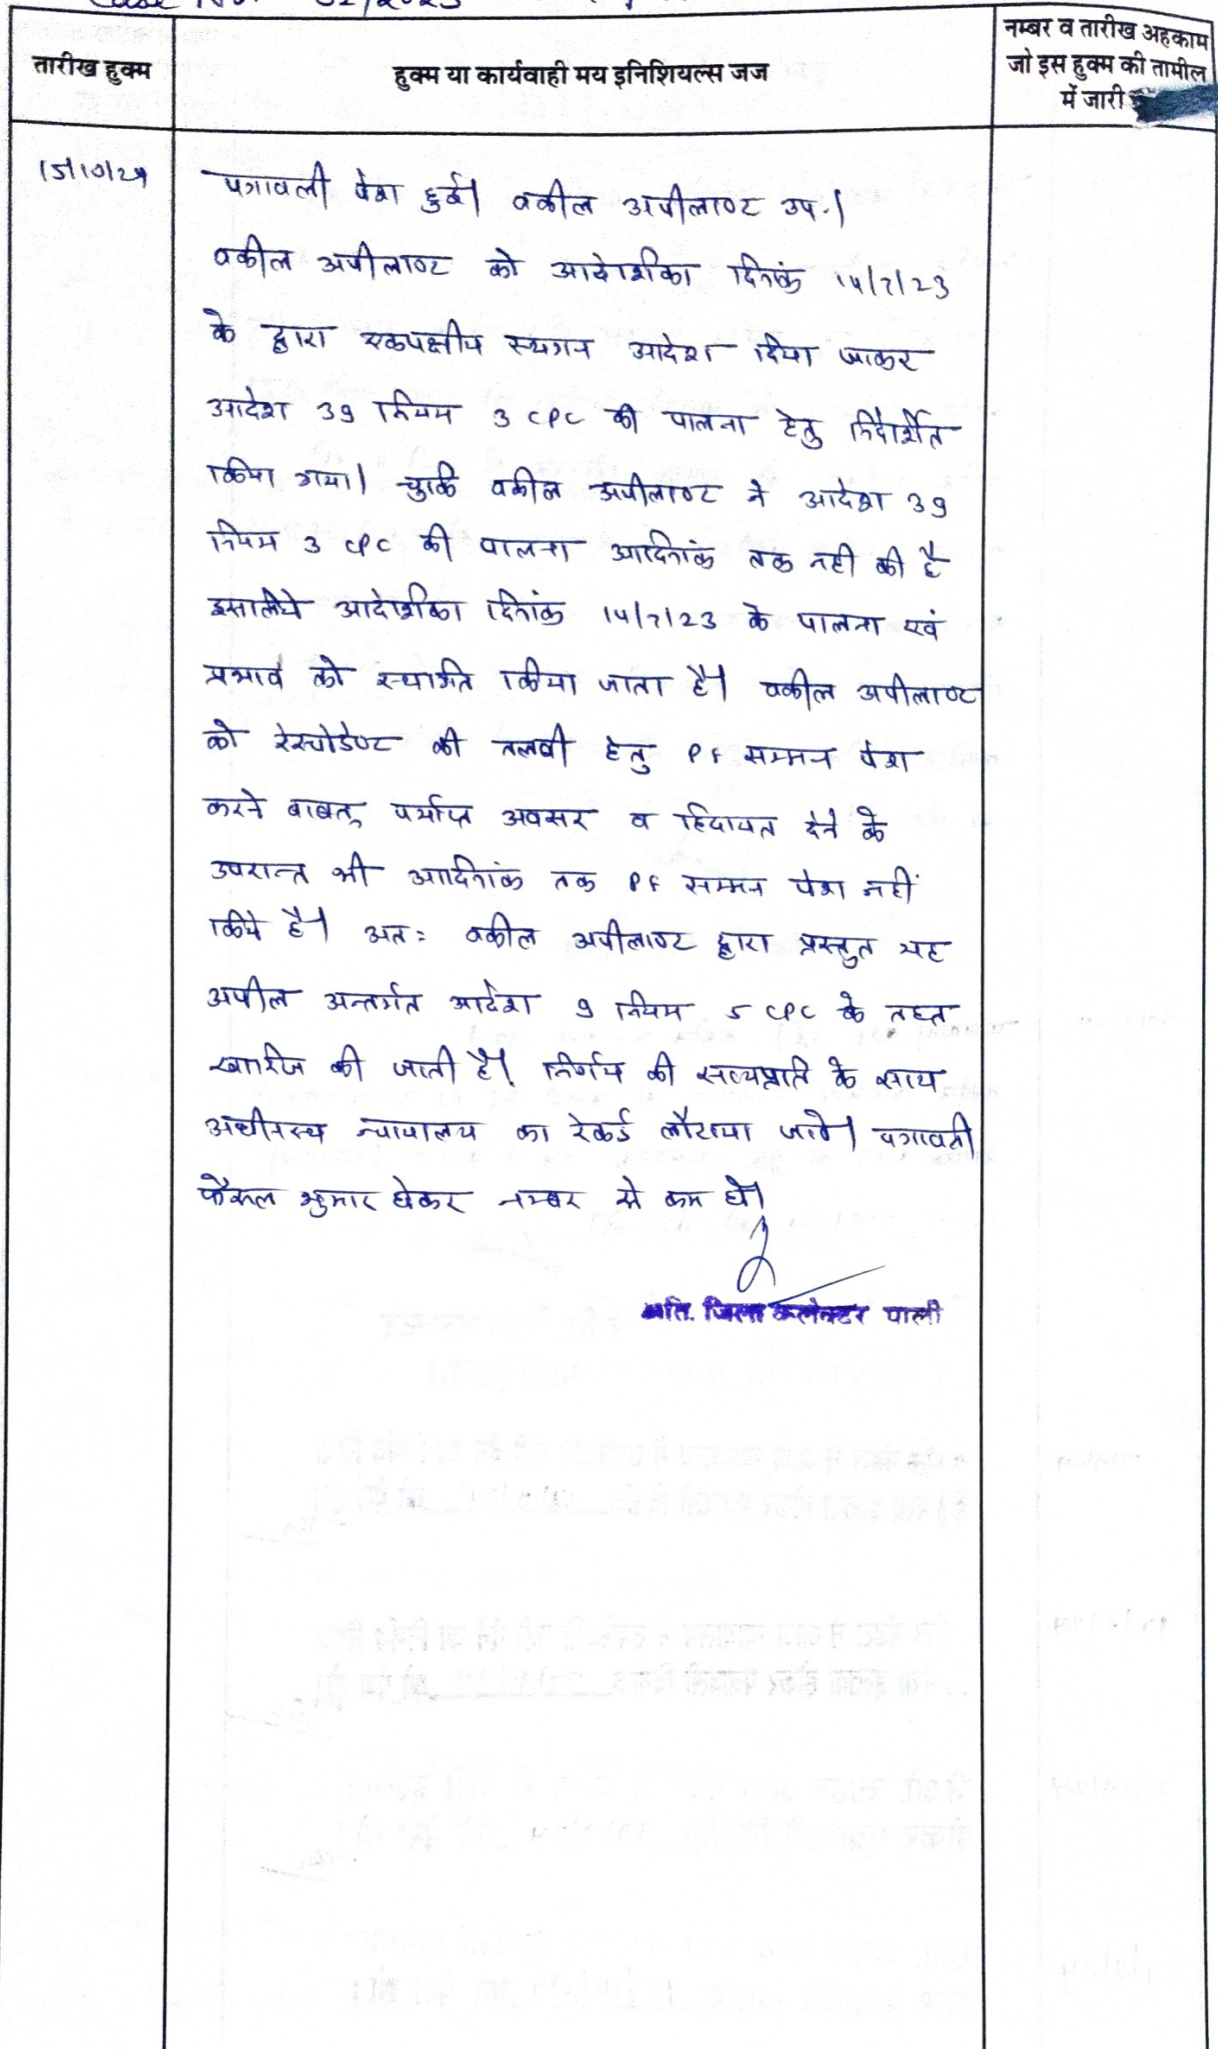 तारीख हुक्म
हुक्म या कार्यवाही मय इनिशियल्स जज
नम्बर व तारीख अहकाम
जो इस हुक्म की तामील
में जारी
15/10/24
पत्रावली पेश हुई। वकील अपीलाण्ट उप.।
वकील अपीलाण्ट को आदेशिका दिनांक 14/7/23
के द्वारा एकपक्षीय स्थगन आदेश दिया जाकर
आदेश 39 नियम 3 CPC की पालना हेतु निर्देशित
किया गया। चुकि वकील अपीलाण्ट ने आदेश 39
नियम 3 CPC की पालना आदिनांक तक नही की है
इसलिये आदेशिका दिनांक 14/7/23 के पालना एवं
प्रभाव को स्थगित किया जाता है। वकील अपीलाण्ट
को रेस्पोडेण्ट की तलबी हेतु PF सम्मन पेश
करने बाबत् पर्याप्त अवसर व हिदायत देने के
उपरान्त भी आदिनांक तक PF सम्मन पेश नहीं
किये है। अतः वकील अपीलाण्ट द्वारा प्रस्तुत यह
अपील अन्तर्गत आदेश 9 नियम 5 CPC के तहत
खारिज की जाती है। निर्णय की सत्यप्रति के साथ
अधीनस्थ न्यायालय का रेकर्ड लौटाया जावे। पत्रावली
फैसल शुमार होकर नम्बर से कम हो।
अति. जिला कलेक्टर पाली